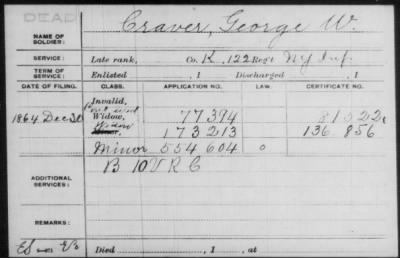 DEAD
NAME OF SOLDIER: Craver, George W.
SERVICE: Late rank, Co. K, 122 Reg't N.Y. Inf.
TERM OF SERVICE: Enlisted , 1 Discharged , 1
DATE OF FILING. CLASS. APPLICATION NO. LAW. CERTIFICATE NO.
Invalid,
1864 Dec 30 Widow, 77394
Widow 173213 136856
Minor 554604 0
ADDITIONAL SERVICES: B 10 V R C
REMARKS:
Died , 1 , at